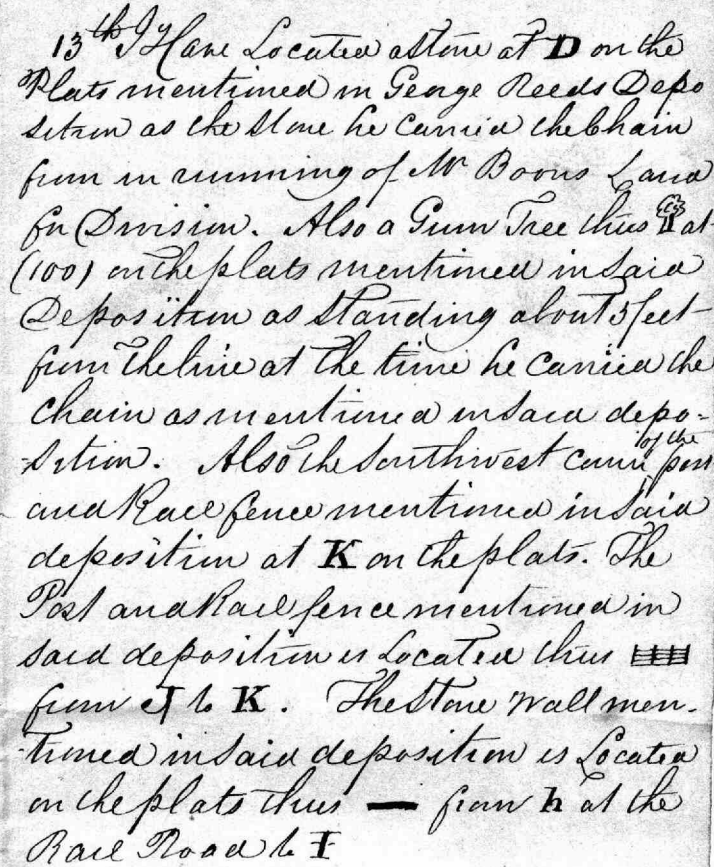 13th I Have Located a stone at D on the
Plats mentioned in George Reeds Depo
sition as the stone he carried the Chain
from in running of Mr Boons Land
for Division. Also a Gum Tree thus at
(100) on the plats mentioned in said
Deposition as standing about 3 feet
from the line at the time he carried the
chain as mentioned in said depo-
-sition. Also the Southwest corner of the post
and Rail fence mentioned in said
deposition at K on the plats. The
Post and Rail fence mentioned in
said deposition is Located thus
from J to K. The Stone wall men-
-tioned in said deposition is Located
on the plats thus — from h at the
Rail Road to I